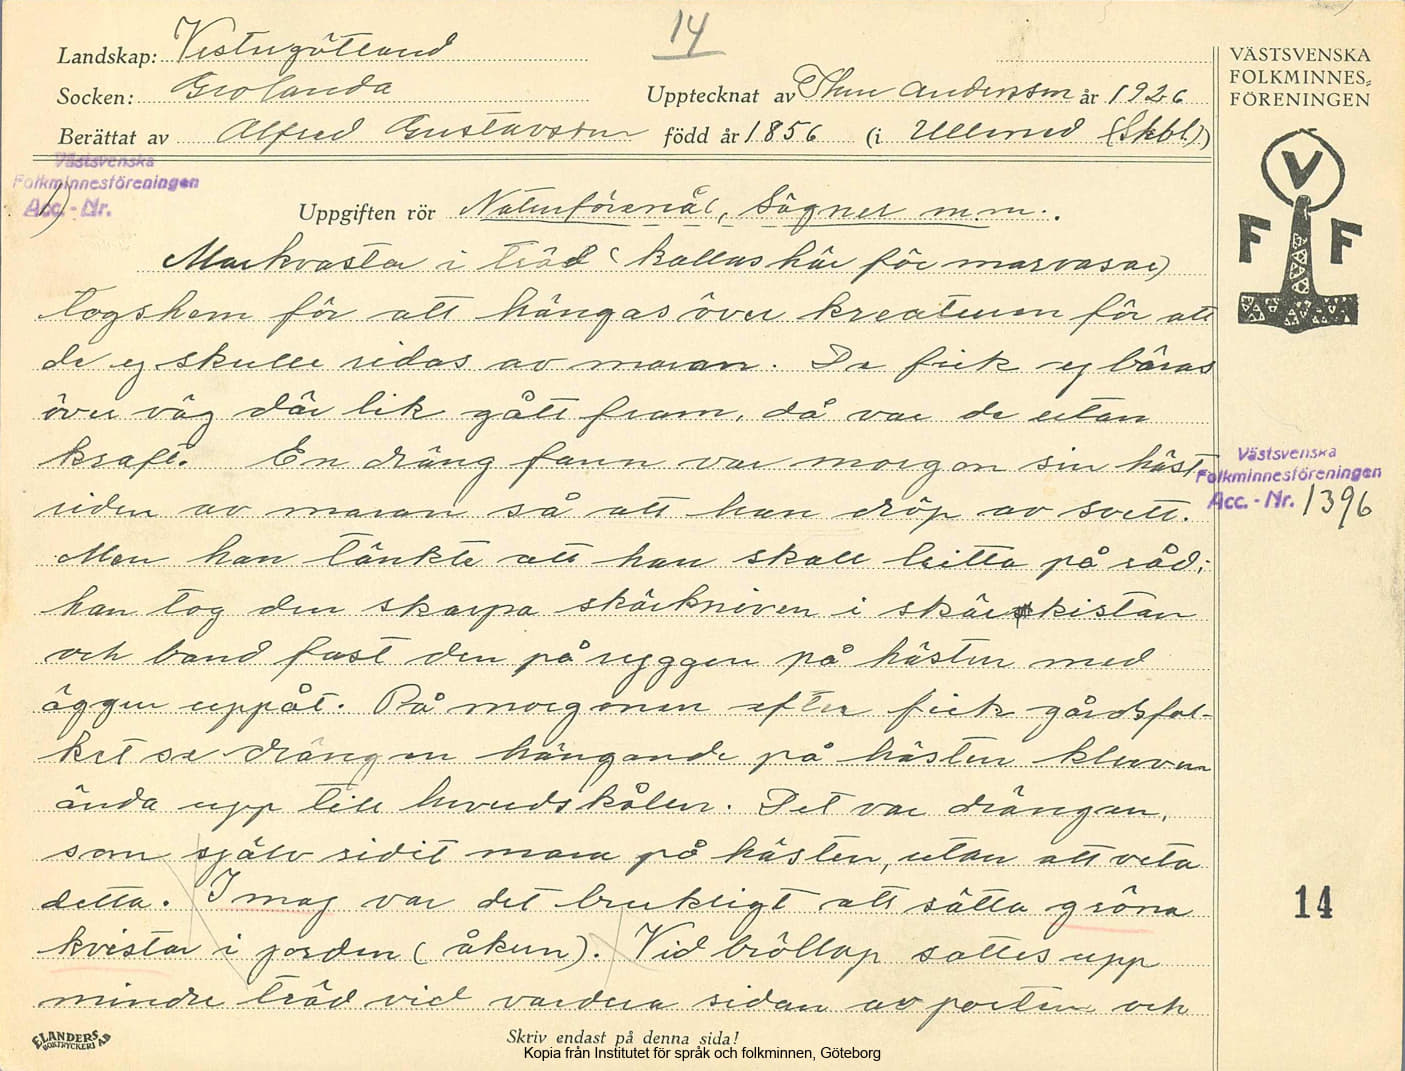 14
Landskap: Vestergötland
Socken: Grolanda
Upptecknat av Thure Andersson år 1926
Berättat av Alfred Gustavsson född år 1856 (i Ullened (Skbl))
VÄSTSVENSKA
FOLKMINNES-
FÖRENINGEN
V
F F
Västsvenska
Folkminnesföreningen
Acc.-Nr.
1)
Uppgiften rör Naturföremål, Sägner m.m.
Markvastar i träd (kallas här för marvasar)
togs hem för att hängas över kreaturen för att
de ej skulle ridas av maran. De fick ej bäras
över väg där lik gått fram, då var de utan
kraft. En dräng fann var morgon sin häst
riden av maran så att han dröp av svett.
Men han tänkte att han skall hitta på råd;
han tog den skarpa skärkniven i skärkistan
och band fast den på ryggen på hästen med
äggen uppåt. På morgonen efter fick gårdsfol-
ket se drängen hängande på hästen kluven
ända upp till huvudskålen. Det var drängen,
som själv ridit mara på hästen, utan att veta
detta. I maj var det brukligt att sätta gröna
kvistar i jorden (åkern). Vid bröllop sattes upp
mindre träd vid vardera sidan av porten och
Västsvenska
Folkminnesföreningen
Acc.-Nr. 1396
14
ELANDERS
BOKTRYCKERI AB
Skriv endast på denna sida!
Kopia från Institutet för språk och folkminnen, Göteborg